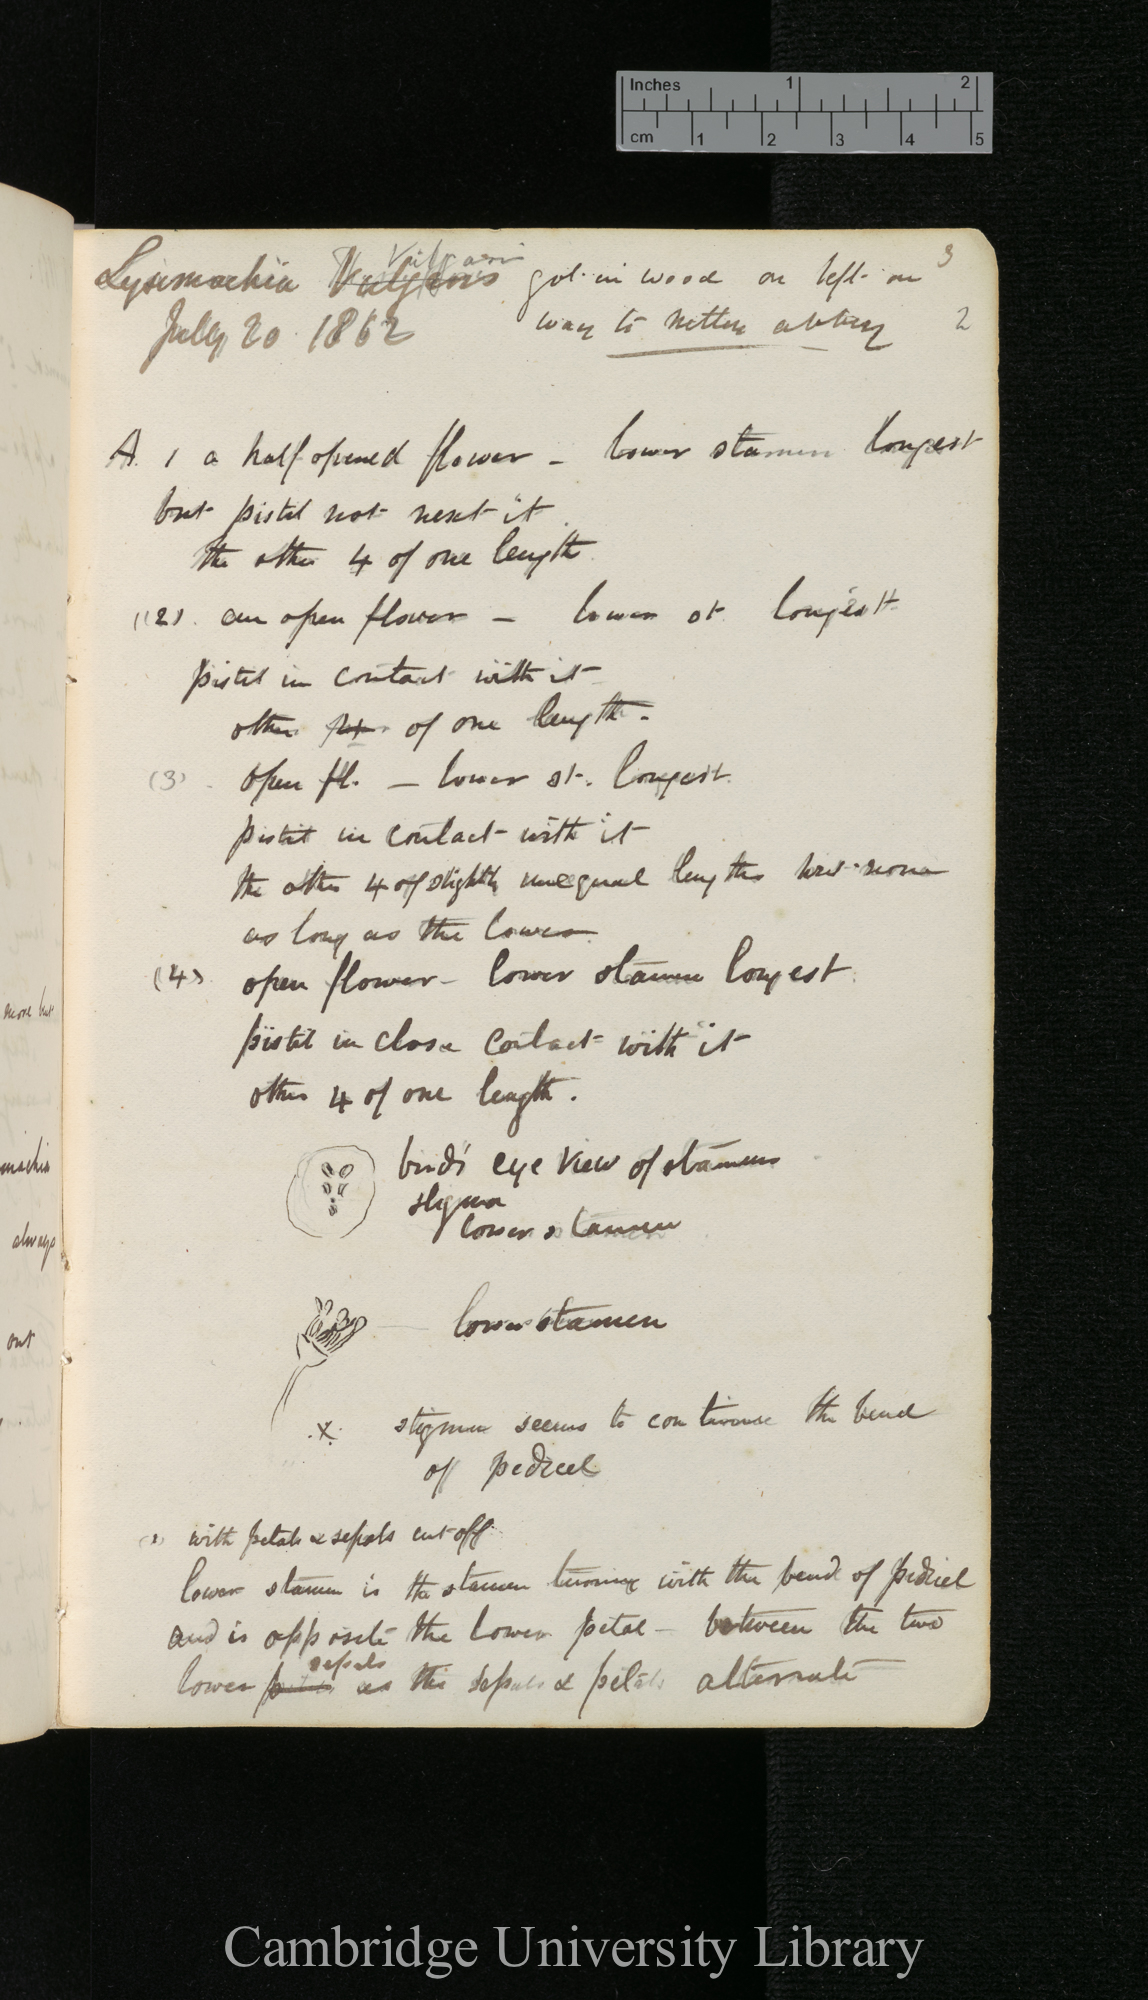 Inches 1 2
cm 1 2 3 4 5
Lysimachia Vulgaris Vulgaris got in wood on left on 3
July 20 1862 way to Netley abbey 2
A. 1 a half opened flower – lower stamen longest
but pistil not next it
the other 4 of one length
(2). an open flower – lower st longest
pistil in contact with it
other 4 of one length.
(3). open fl. – lower st. longest
pistil in contact with it
the other 4 of slightly unequal lengths but none
as long as the lower
(4) open flower – lower stamen longest
pistil in close contact with it
other 4 of one length.
bird's eye view of stamens
stigma
lower stamen
lower stamen
x stigma seems to continue the bend
of pedicel
with petals & sepals cut off
lower stamen is the stamen turning with the bend of pedicel
and is opposite the lower petal – between the two
sepals
lower as the sepals & petals alternate
more but
always
out
Cambridge University Library